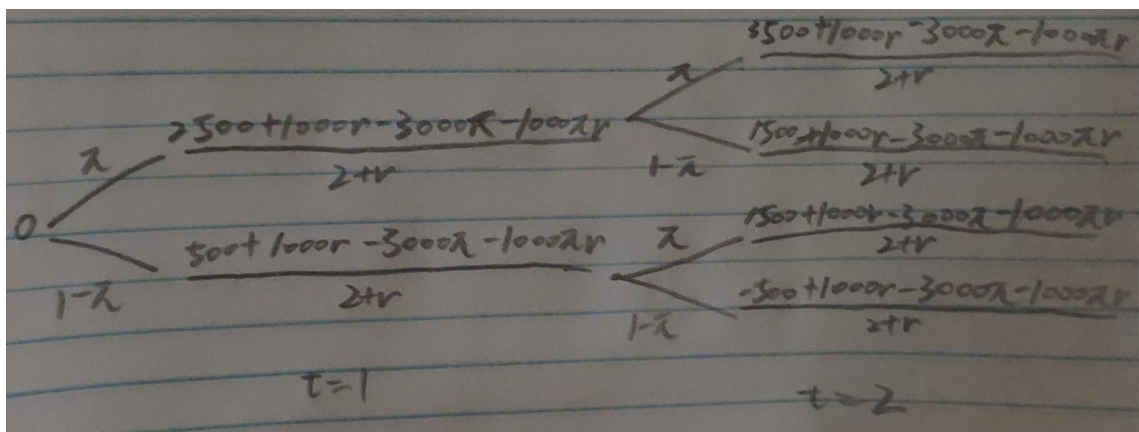 3500+1000r-3000π-1000πr
2+r
π
2500+1000r-3000π-1000πr
2+r
1-π
1500+1000r-3000π-1000πr
2+r
π
0
1-π
500+1000r-3000π-1000πr
2+r
π
1500+1000r-3000π-1000πr
2+r
1-π
-500+1000r-3000π-1000πr
2+r
t=1
t=2